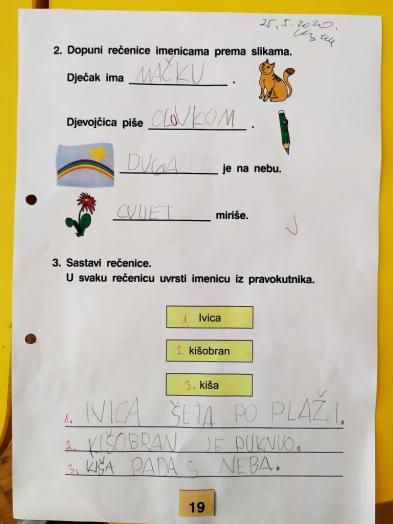 25.5.2020.
2. Dopuni rečenice imenicama prema slikama.
Dječak ima MAČKU .
Djevojčica piše OLOVKOM .
DUGA je na nebu.
CVIJET miriše.
3. Sastavi rečenice.
U svaku rečenicu uvrsti imenicu iz pravokutnika.
1. Ivica
2. kišobran
3. kiša
1. IVICA ŠETA PO PLAŽI.
2. KIŠOBRAN JE PUKNUO.
3. KIŠA PADA S NEBA.
19